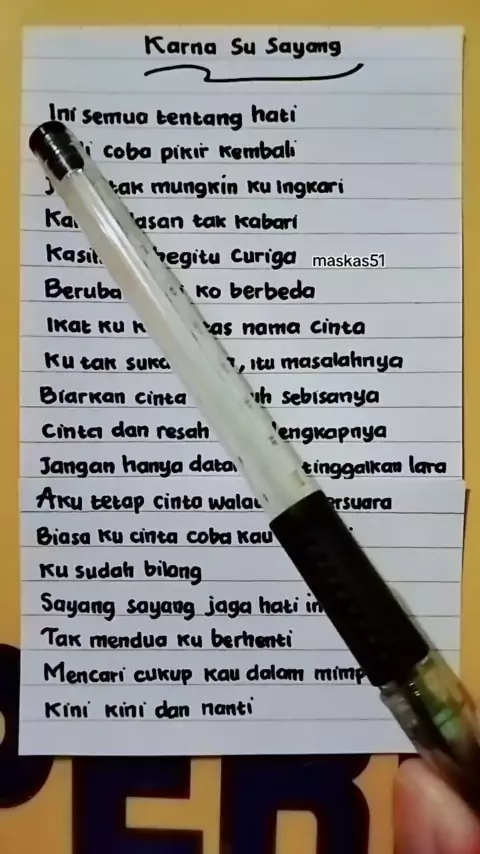 Karna Su Sayang
Ini semua tentang hati
coba pikir kembali
tak mungkin ku Ingkari
alasan tak kabari
Kasih begitu Curiga
maskas51
ko berbeda
Ikat ku atas nama cinta
Ku tak suka, itu masalahnya
Biarkan cinta sebisanya
Cinta dan resah
Jangan hanya tinggalkan lara
Aku tetap cinta
Biasa ku cinta coba kau
Ku sudah bilang
Sayang sayang jaga hati
Tak mendua ku berhenti
Mencari cukup kau dalam mimpi
Kini kini dan nanti